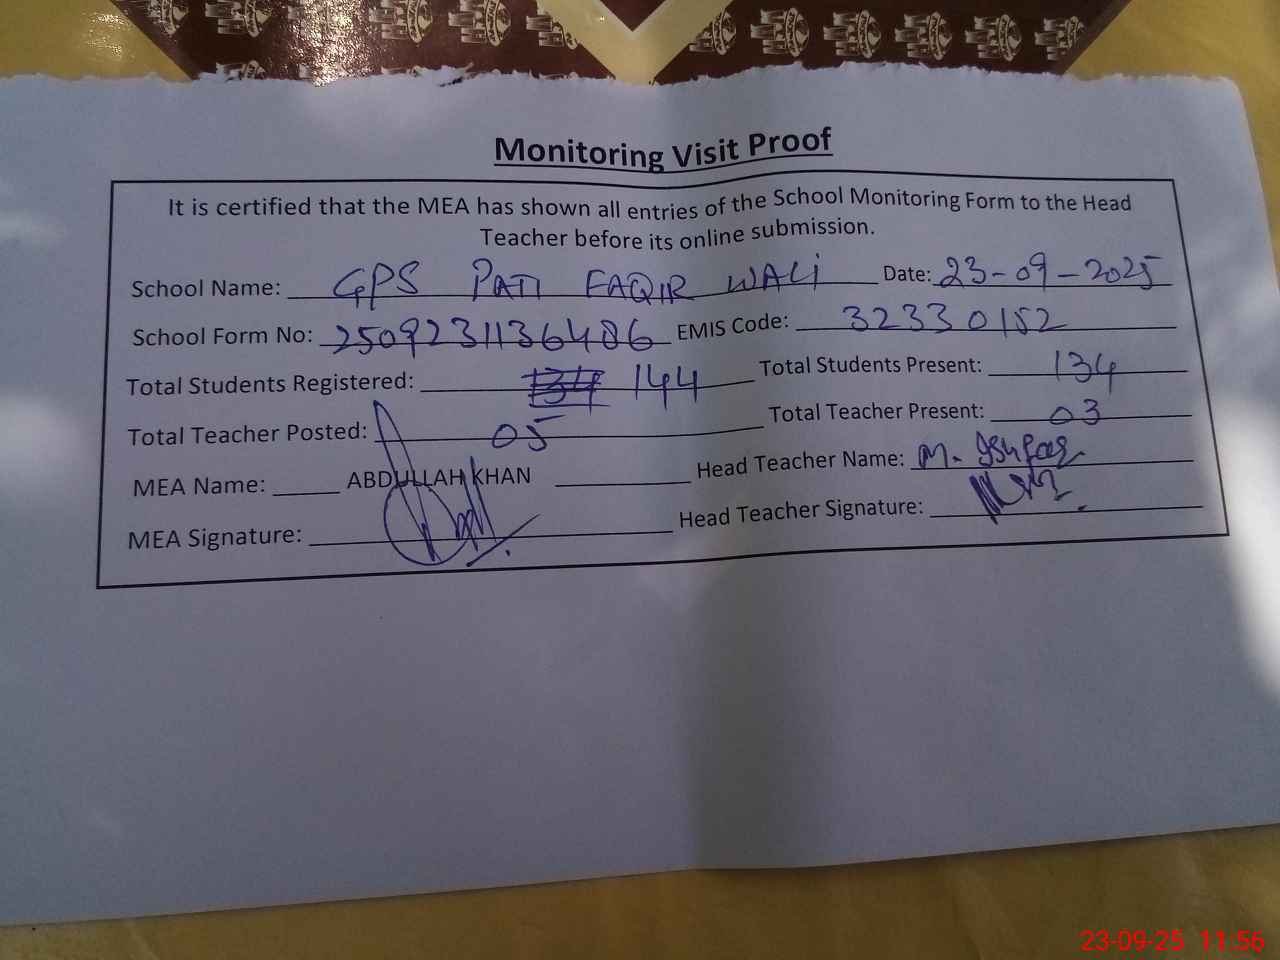 Monitoring Visit Proof
It is certified that the MEA has shown all entries of the School Monitoring Form to the Head
Teacher before its online submission.
School Name: GPS PATI FAQIR WALI Date: 23-09-2025
School Form No: 2509231136486 EMIS Code: 32330152
Total Students Registered: 134 144 Total Students Present: 134
Total Teacher Posted: 05 Total Teacher Present: 03
MEA Name: ABDULLAH KHAN Head Teacher Name: M. Ishfaq
MEA Signature: Head Teacher Signature:
23-09-25 11:56